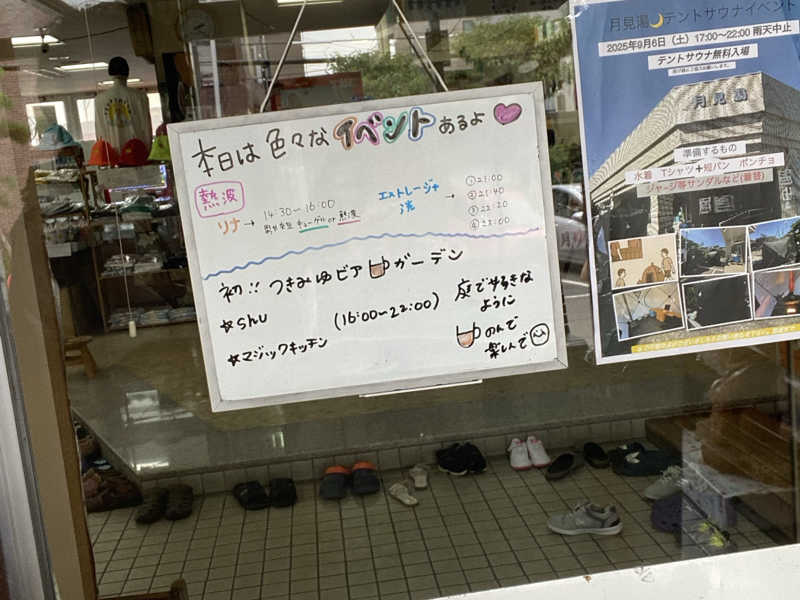 本日は色々なイベントあるよ
熱波
リナ→ 14:30〜16:00
or 熱波
エストレージャ →
① 21:00
② 21:40
③ 22:20
④ 23:00
初!! つきみゆビア ガーデン
(16:00〜22:00)
☆マジックキッチン
庭で好きな
ように
のんで
楽しんで
月見湯🌙テントサウナイベント
2025年9月6日（土）17:00〜22:00 雨天中止
テントサウナ無料入場
月見湯
準備するもの
水着 Tシャツ＋短パン ポンチョ
ジャージ等サンダルなど(兼移)